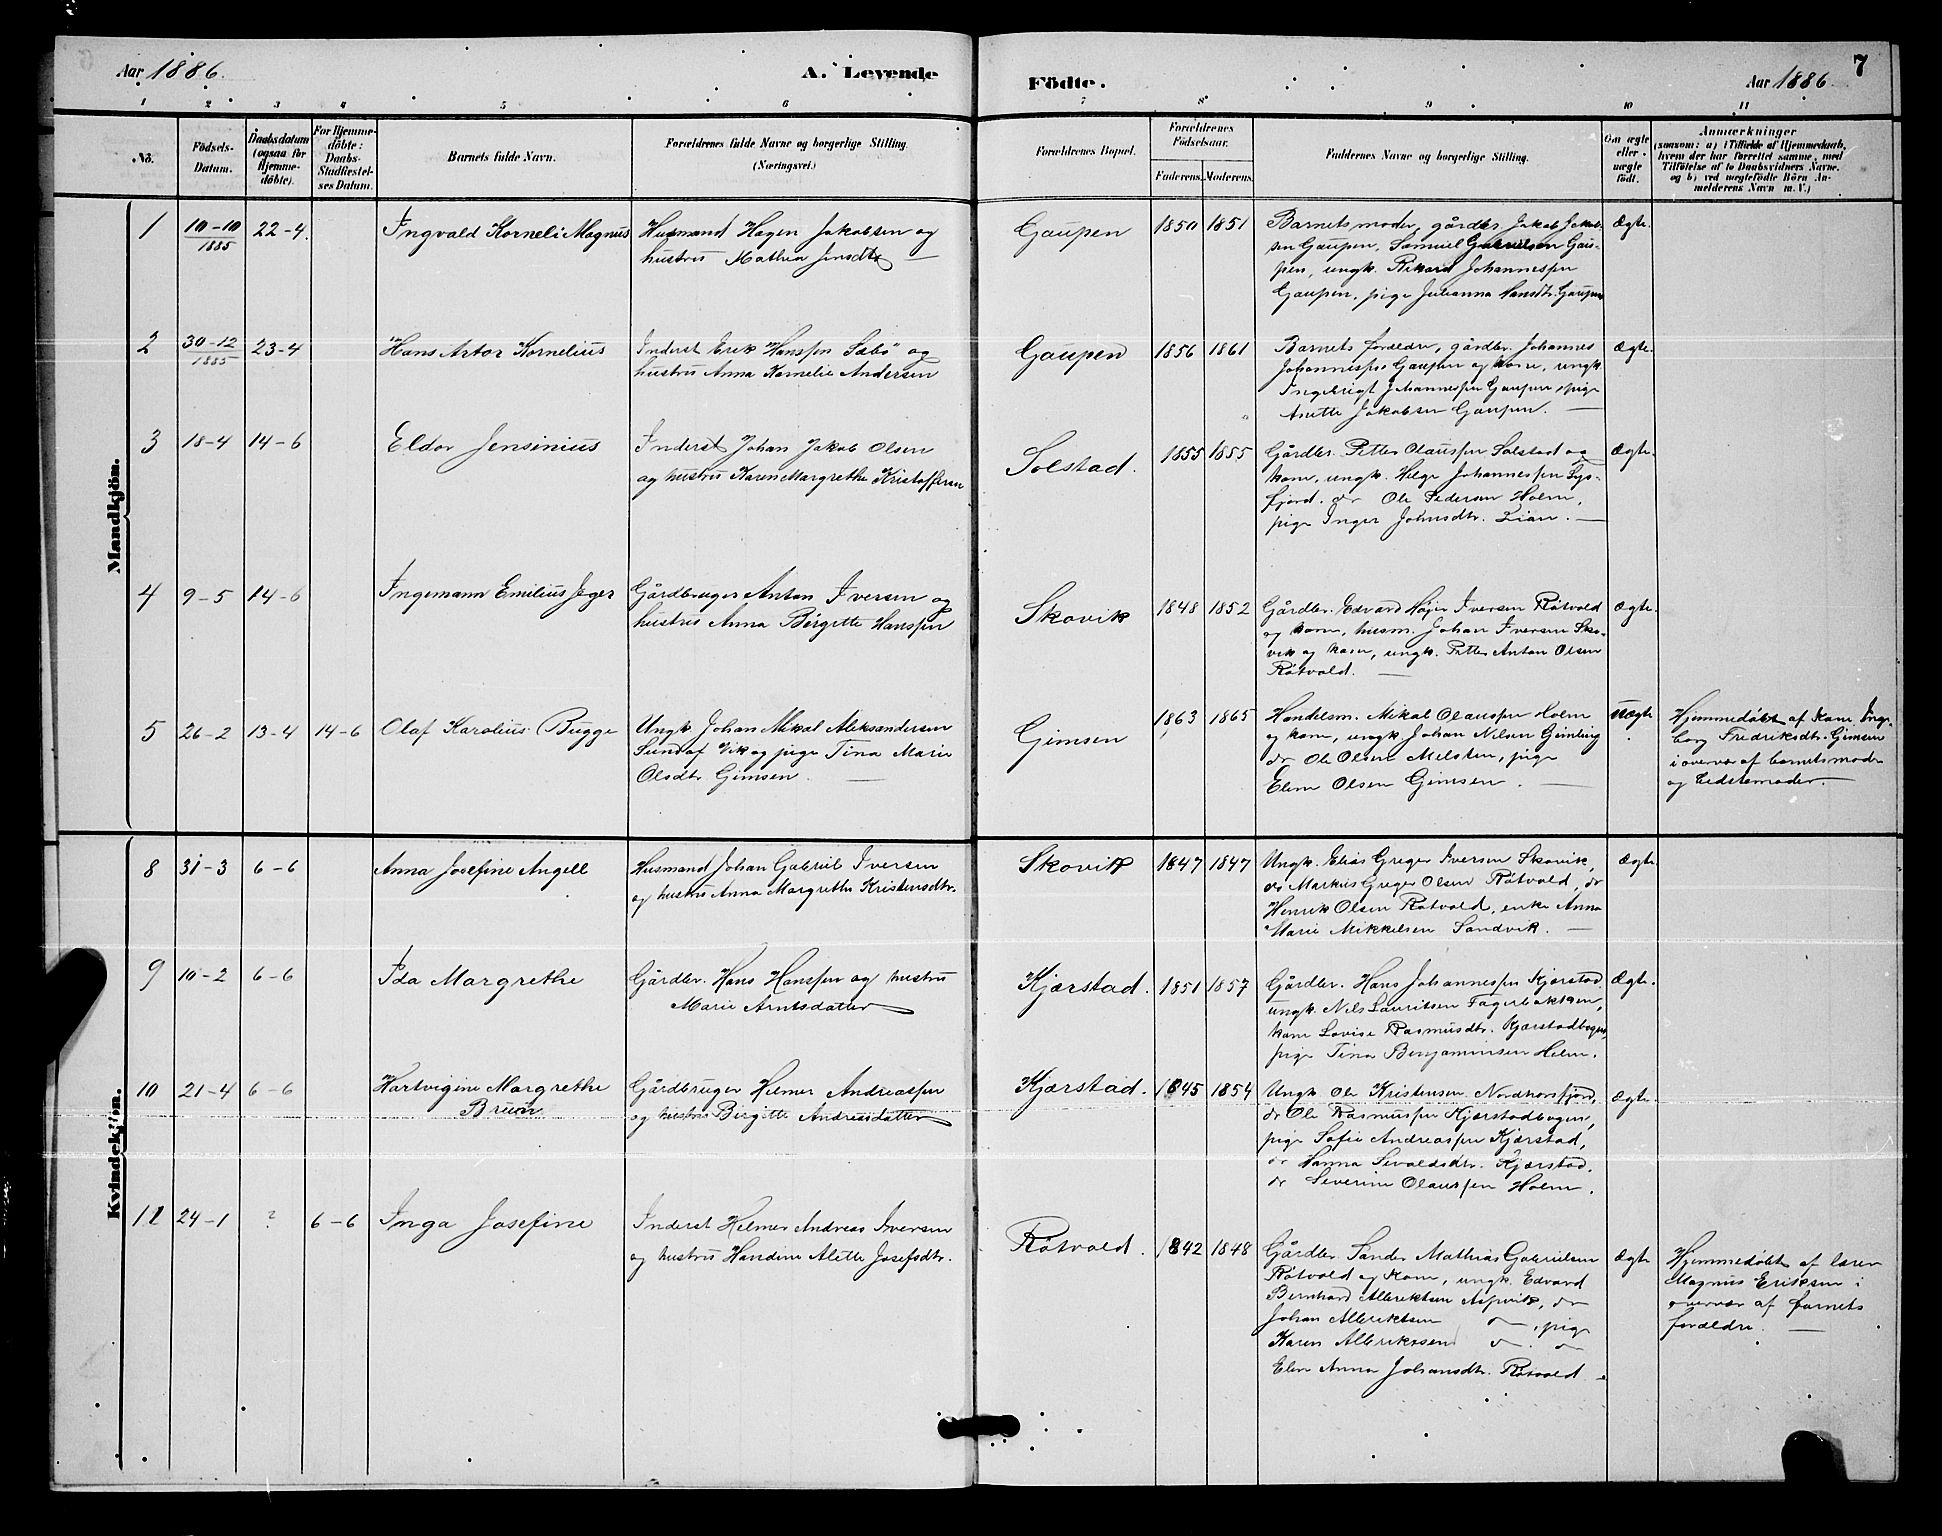 Aar 1886.
A. Levende
Födte.
Aar 1886.
7
1 2 3 4 5 6 7 8 9 10 11
No.
Födsels-
Datum.
Daabsdatum
(ogsaa for
Hjemme-
döbte).
For Hjemme-
döbte:
Daabs-
Stadfæstel-
ses Datum.
Barnets fulde Navn.
Forældrenes fulde Navne og borgerlige Stilling.
(Næringsvei.)
Forældrenes Bopæl.
Forældrenes
Födselsaar.
Faderens. Moderens.
Faddernes Navne og borgerlige Stilling.
Om ægte
eller
uægte
födt.
Anmærkninger
(saasom: a) i Tilfælde af Hjemmedaab,
hvem der har forrettet samme, med
Tilföielse af to Daabsvidners Navne,
og b) ved uægtefödte Börn An-
melderens Navn m. V.)
Mandkjön.
1 10-10 22-4. Ingvald Korneli Magnus
1885
Husmand Hagen Jakobsen og
hustru Mathea Jensdtr
Gaupen 1850 1851
Barnets moder, gårdbr Jakob Jakob-
sen Gaupen, Samuel Gabrielsen Gau-
pen, ungk. Rikard Johannessen
Gaupen, pige Julianna Hansdtr. Gaupen
Ægte.
2 30-12 23-4 Hans Artor Kornelius
1885
Inderst Erik Hanssen Sæbö og
hustru Anna Kornelie Andersen
Gaupen 1856 1861
Barnets forældre, gårdbr. Johannes
Johannessen Gaupen og kone, ungk.
Ingebrigt Johannessen Gaupen, pige
Anette Jakobsen Gaupen.
Ægte.
3 18-4 14-6 Eldor Jensinius
Inderst Johan Jakob Olsen
og hustru Karen Margrethe Kristoffersen
Solstad. 1855 1855
Gårdbr. Petter Olaussen Solstad og
kone, ungk. Helge Johannessen Sys-
fjord. do Ole Pedersen Holm,
pige Inger Johnsdtr. Lian.
Ægte.
4 9-5 14-6 Ingemann Emilius Jeger
Gårdbruger Anton Iversen og
hustru Anna Birgitte Hanssen
Skovik 1848 1852
Gårdbr. Edvard Højer Iversen Råtvold
og kone, husm. Johan Iversen Sko-
vik og kone, ungk. Petter Anton Olsen
Råtvold.
Ægte.
5 26-2 13-4 14-6 Olaf Karolius Bugge
Ungk. Johan Mikal Aleksandersen
Sund af Vik og pige Tina Marie
Olsdtr Gimsen.
Gimsen 1863 1865
Handelsm. Mikal Olaussen Holm
og kone, ungk. Johan Nilsen
do Ole Olsen Melsten, pige
Eline Olsen Gimsen.
Uægte.
Hjemmedøbt af Kone Inge-
borg Fredriksdtr. Gimsen
i overvær af barnets moder
og bedstemoder.
Kvindekjön.
8 31-3 6-6 Anna Josefine Angell
Husmand Johan Gabriel Iversen
og hustru Anna Margrethe Kristensdtr.
Skovik 1847 1847
Ungk. Elias Greger Iversen Skovik,
do Markus Greger Olsen Råtvold, do
Henrik Olsen Råtvold, enke Anna
Marie Mikkelsen Sandvik.
Ægte.
9 10-2 6-6 Ida Margrethe
Gårdbr. Hans Hanssen og hustru
Marie Arntsdatter
Kjærstad. 1851 1857
Gårdbr. Hans Johannessen Kjærstad,
ungk. Nils Lauritsen Fagerbakken,
kone Lovise Rasmusdtr. Kjærstadbogen,
pige Tina Benjaminsen Holm.
Ægte.
10 21-4 6-6 Hartvigine Margrethe
Bruun
Gårdbruger Helmer Andreassen
og hustru Birgitte Andreasdatter
Kjærstad. 1845 1854
Ungk Ole Kristensen Nordhorsfjord,
do Ole Rasmussen Kjærstadbogen,
pige Sofie Andreassen Kjærstad,
do Hanna Sivaldsdtr. Kjærstad.
do Severine Olaussen Holm.
Ægte.
11 24-1 ? 6-6 Inga Josefine
Inderst Helmer Andreas Iversen
og hustru Handine Alette Josefsdtr.
Råtvold. 1842 1848
Gårdbr. Sander Mathias Gabrielsen
Råtvold og Kone, ungk. Edvard
Bernhard Albriktsen Aspvik, do
Johan Albriktsen do, pige
Karen Albriktsen do. do
Eline Anna Johansdtr. Råtvold
Ægte
Hjemmedøbt af lærer
Magnus Eriksen i
overvær af barnets
forældre.